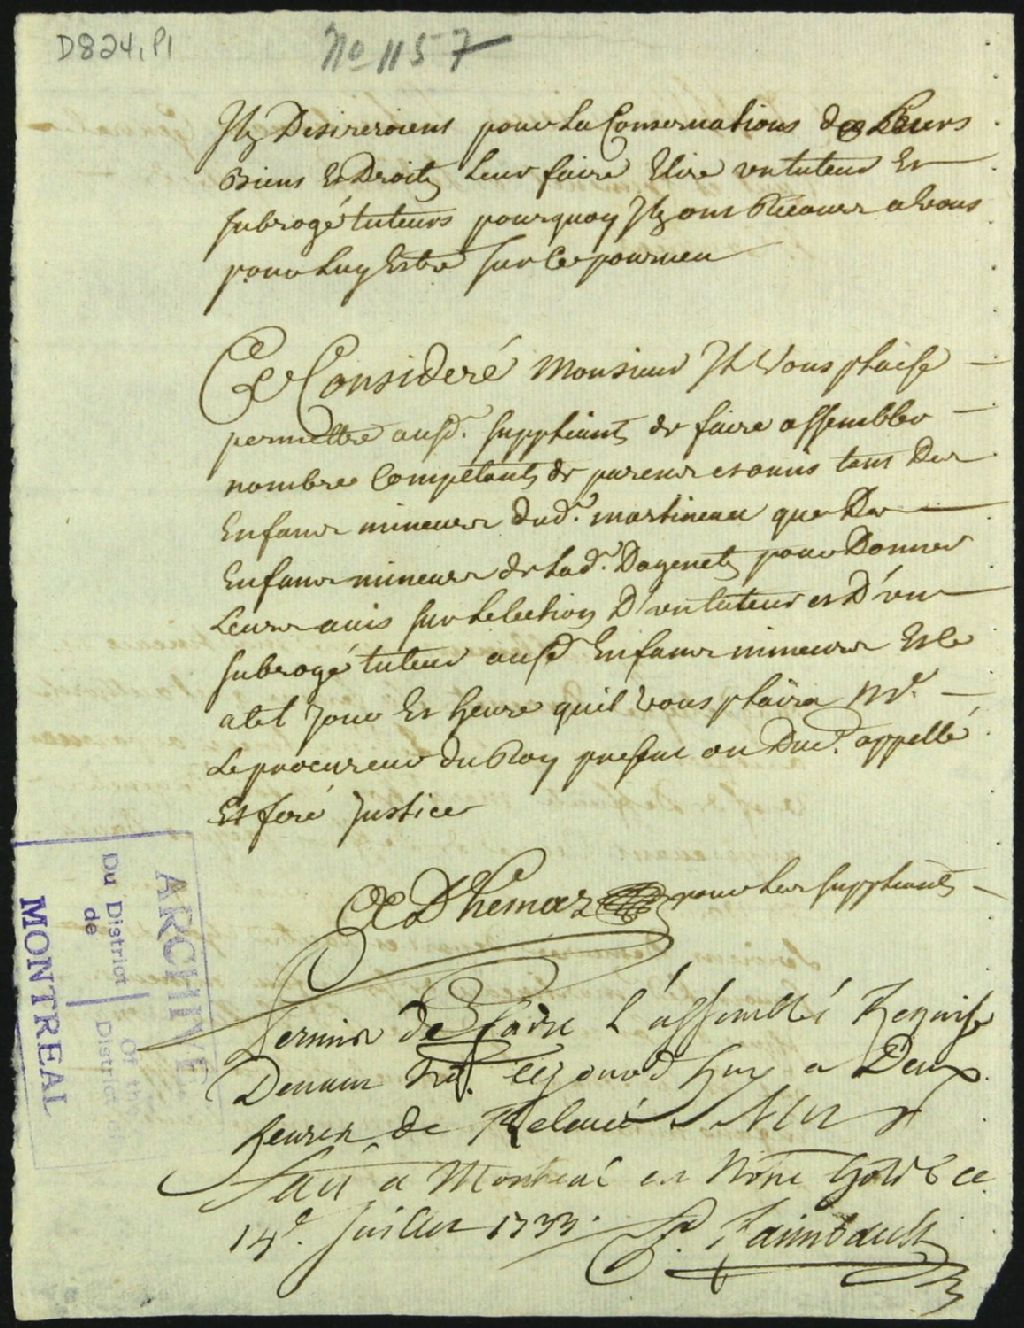 D824, P1
No 1157
Ilz Desireroient pour La Conservations de Leurs
Biens Et Droits Leur faire Elire un tuteur Et
subrogé tuteurs pourquoy Ilz ont Recours a Vous
pour Luy Estre sur Ce pourveu
Ce Consideré Monsieur Il Vous plaise
permettre ausd. supphiants de faire assembler
nombre Compétants de parens et amis tant Des
Enfans mineurs dud. martineau que Des
Enfans mineurs de Lad. Dagenets pour Donner
Leurs avis sur Lelection D'un tuteur et D'un
subrogé tuteur ausd. Enfans mineurs Et Ce
a tel Jour Et heure quil Vous plaira Mr.
Le procureur du Roy present ou Duc. appellé
Et feré Justice
pour Les supphiants
Permis de faire L'assemblée Requise
Devant Nd. Cejourd'huy a Deux
heures de Relevé
fait a Montreal en Notre hotel Ce
14e. Juillet 1733. P. Raimbault
ARCHIVES
Du District Of the
de District of
MONTREAL